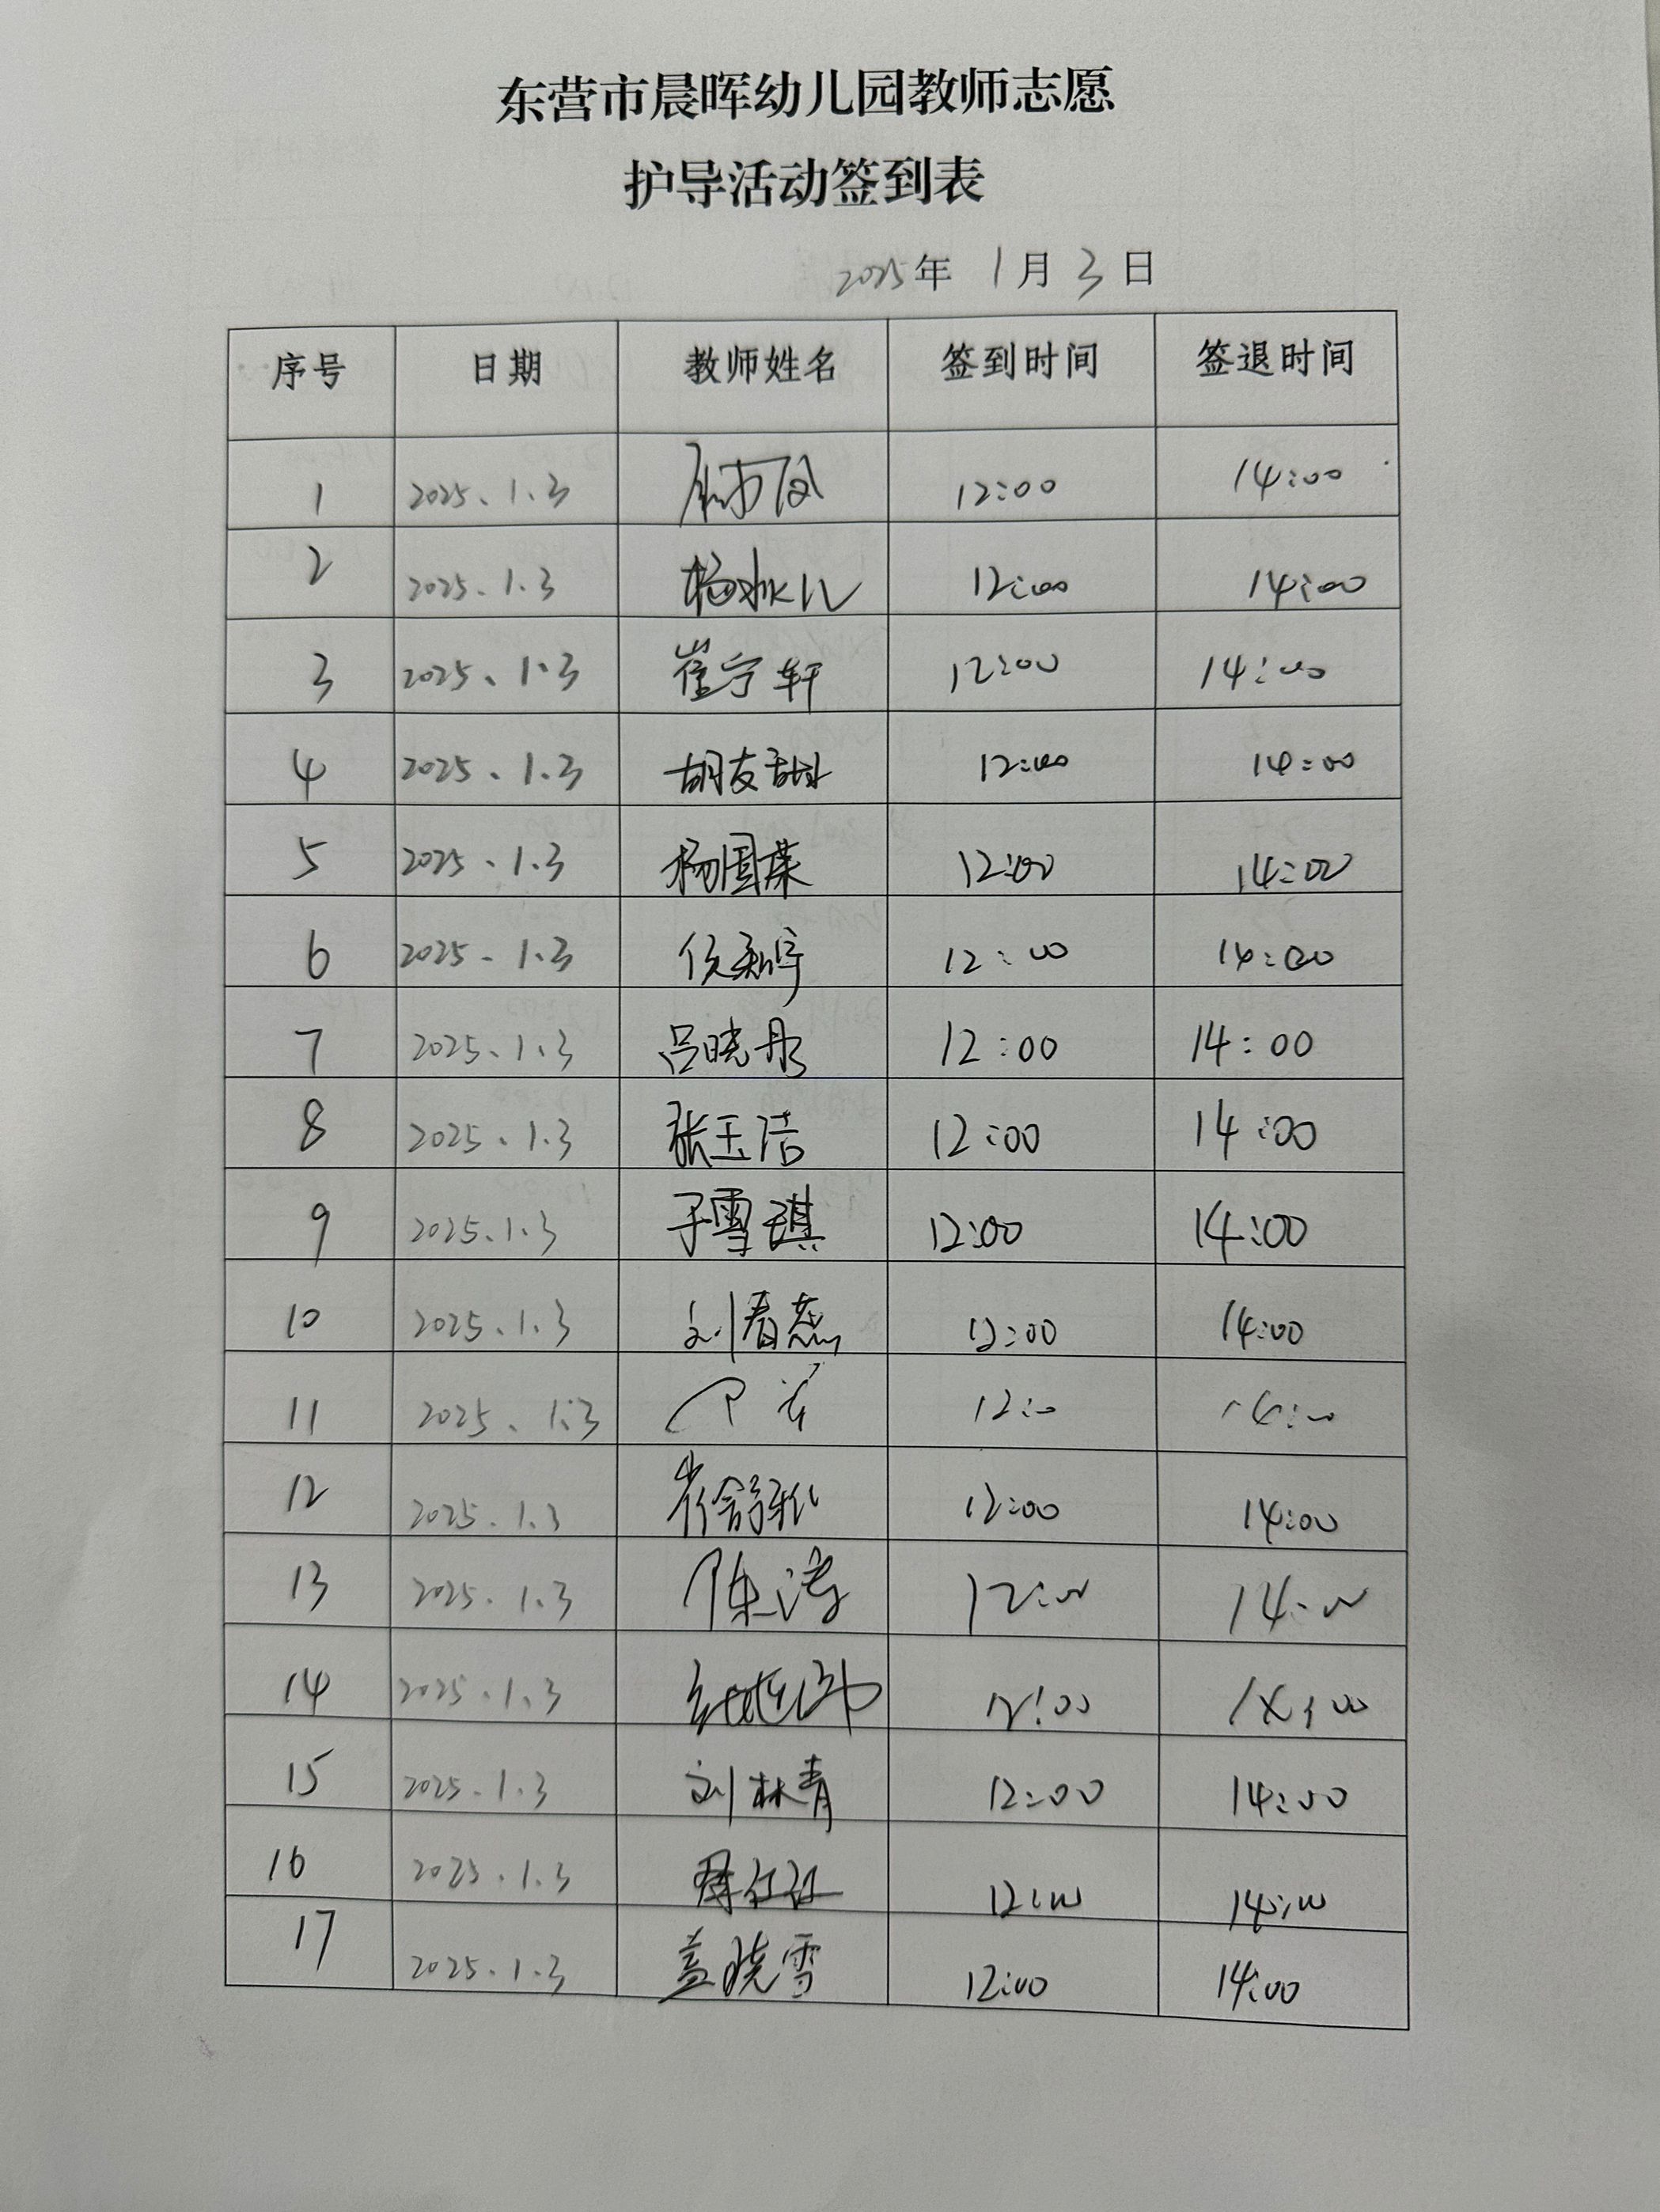 东营市晨晖幼儿园教师志愿
护导活动签到表
2025年 1月 3日
序号 日期 教师姓名 签到时间 签退时间
1 2025.1.3 12:00 14:00
2 2025.1.3 杨冰儿 12:00 14:00
3 2025.1.3 崔宁轩 12:00 14:00
4 2025.1.3 胡友甜 12:00 14:00
5 2025.1.3 杨国蕖 12:00 14:00
6 2025.1.3 侯利宇 12:00 14:00
7 2025.1.3 吕晓丹 12:00 14:00
8 2025.1.3 张玉洁 12:00 14:00
9 2025.1.3 于雪琪 12:00 14:00
10 2025.1.3 刘春燕 12:00 14:00
11 2025.1.3 12:00 14:00
12 2025.1.3 崔舒雅 12:00 14:00
13 2025.1.3 陈涛 12:00 14:00
14 2025.1.3 12:00 14:00
15 2025.1.3 刘林青 12:00 14:00
16 2025.1.3 12:00 14:00
17 2025.1.3 盖晓雪 12:00 14:00